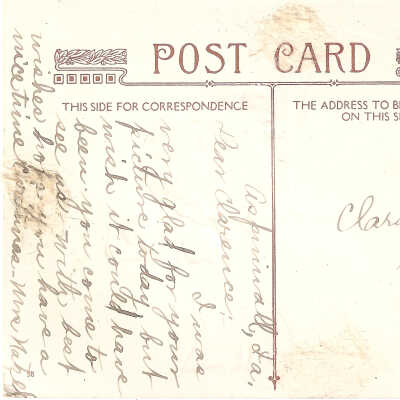 POST CARD
THIS SIDE FOR CORRESPONDENCE
THE ADDRESS TO BE
ON THIS SI
Aspinwall, Ia.
Dear Clarence:
I was
very glad for your
picture today but
wish it could have
been you come to
see us - With best
wishes hope you have a
nice time Xmas - Mrs
Clar